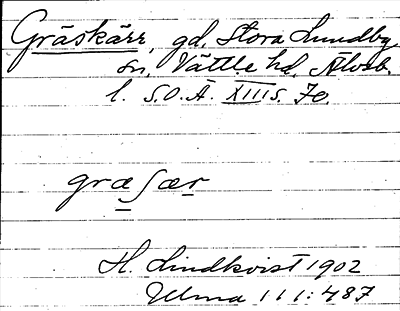 Gräskärr, gd, Stora Lundby
sn, Vättle hd, Älvsb.
l. S.O.Ä. XIII s. 70.
græʃær
H. Lindkvist 1902
Ulma 111:487